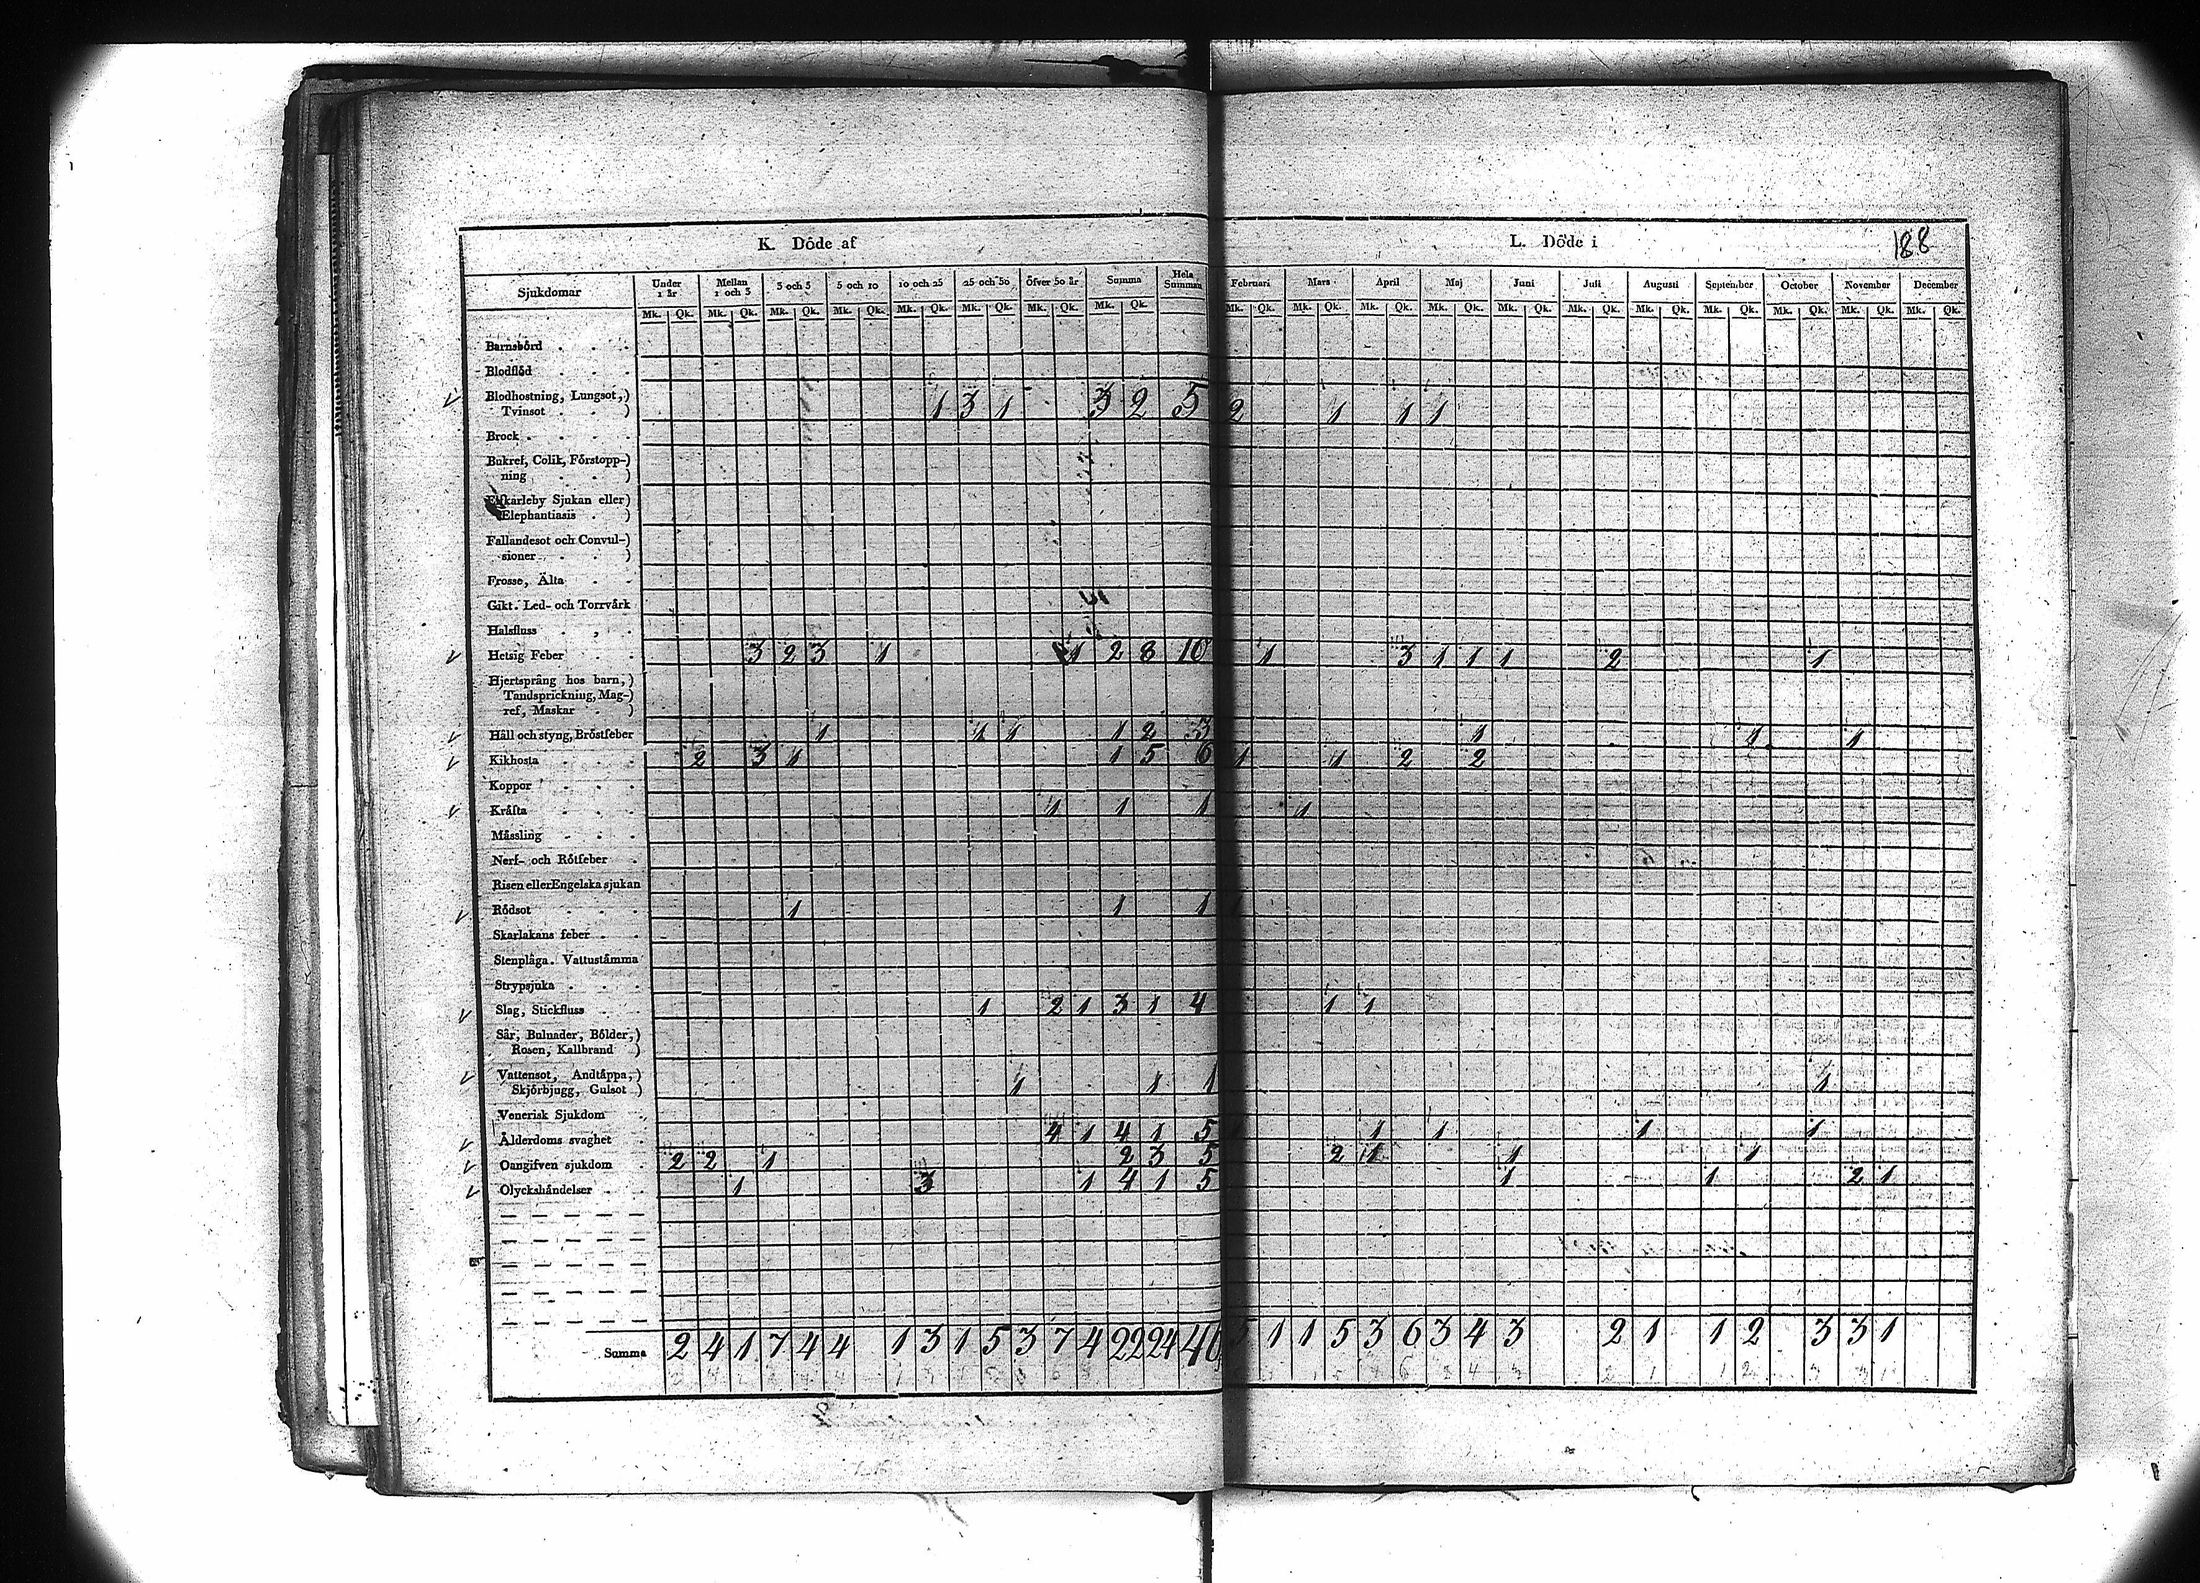 K. Döde af
L. Döde i
188
Sjukdomar Under 1 år Mellan 1 och 3 3 och 5 5 och 10 10 och 25 25 och 50 Öfver 50 år Summa Hela Summan Februari Mars April Maj Juni Juli Augusti September October November December
Mk. Qk. Mk. Qk. Mk. Qk. Mk. Qk. Mk. Qk. Mk. Qk. Mk. Qk. Mk. Qk. Mk. Qk. Mk. Qk. Mk. Qk. Mk. Qk. Mk. Qk. Mk. Qk. Mk. Qk. Mk. Qk. Mk. Qk. Mk. Qk. Mk. Qk.
Barnsbörd
Blodflöd
Blodhostning, Lungsot,)
Tvinsot ) 1 3 1 3 2 5 2 1 1 1
Brock
Bukref, Colik, Förstopp-)
ning )
Elfkarleby Sjukan eller)
Elephantiasis )
Fallandesot och Convul-)
sioner )
Frosse, Älta
Gikt. Led- och Torrvärk
Halsfluss
Hetsig Feber 3 2 3 1 1 2 8 10 1 3 1 1 1 2 1
Hjertsprång hos barn,)
Tandsprickning, Mag-)
ref, Maskar )
Håll och styng, Bröstfeber 1 1 1 1 2 3 1 1 1
Kikhosta 2 3 1 1 5 6 1 1 2 2
Koppor
Kräfta 1 1 1 1
Mässling
Nerf- och Rötfeber
Risen eller Engelska sjukan
Rödsot 1 1 1 1
Skarlakans feber
Stenplåga. Vattustämma
Strypsjuka
Slag, Stickfluss 1 2 1 3 1 4 1 1
Sår, Bulnader, Bölder,)
Rosen, Kallbrand )
Vattensot, Andtäppa,)
Skjörbjugg, Gulsot ) 1 1 1 1
Venerisk Sjukdom
Ålderdoms svaghet 4 1 4 1 5 1 1 1 1 1
Oangifven sjukdom 2 2 1 2 3 5 2 1 1 1
Olyckshändelser 1 3 1 4 1 5 1 1 2 1
Summa 2 4 1 7 4 4 1 3 1 5 3 7 4 22 24 46 5 1 1 5 3 6 3 4 3 2 1 1 2 3 3 1